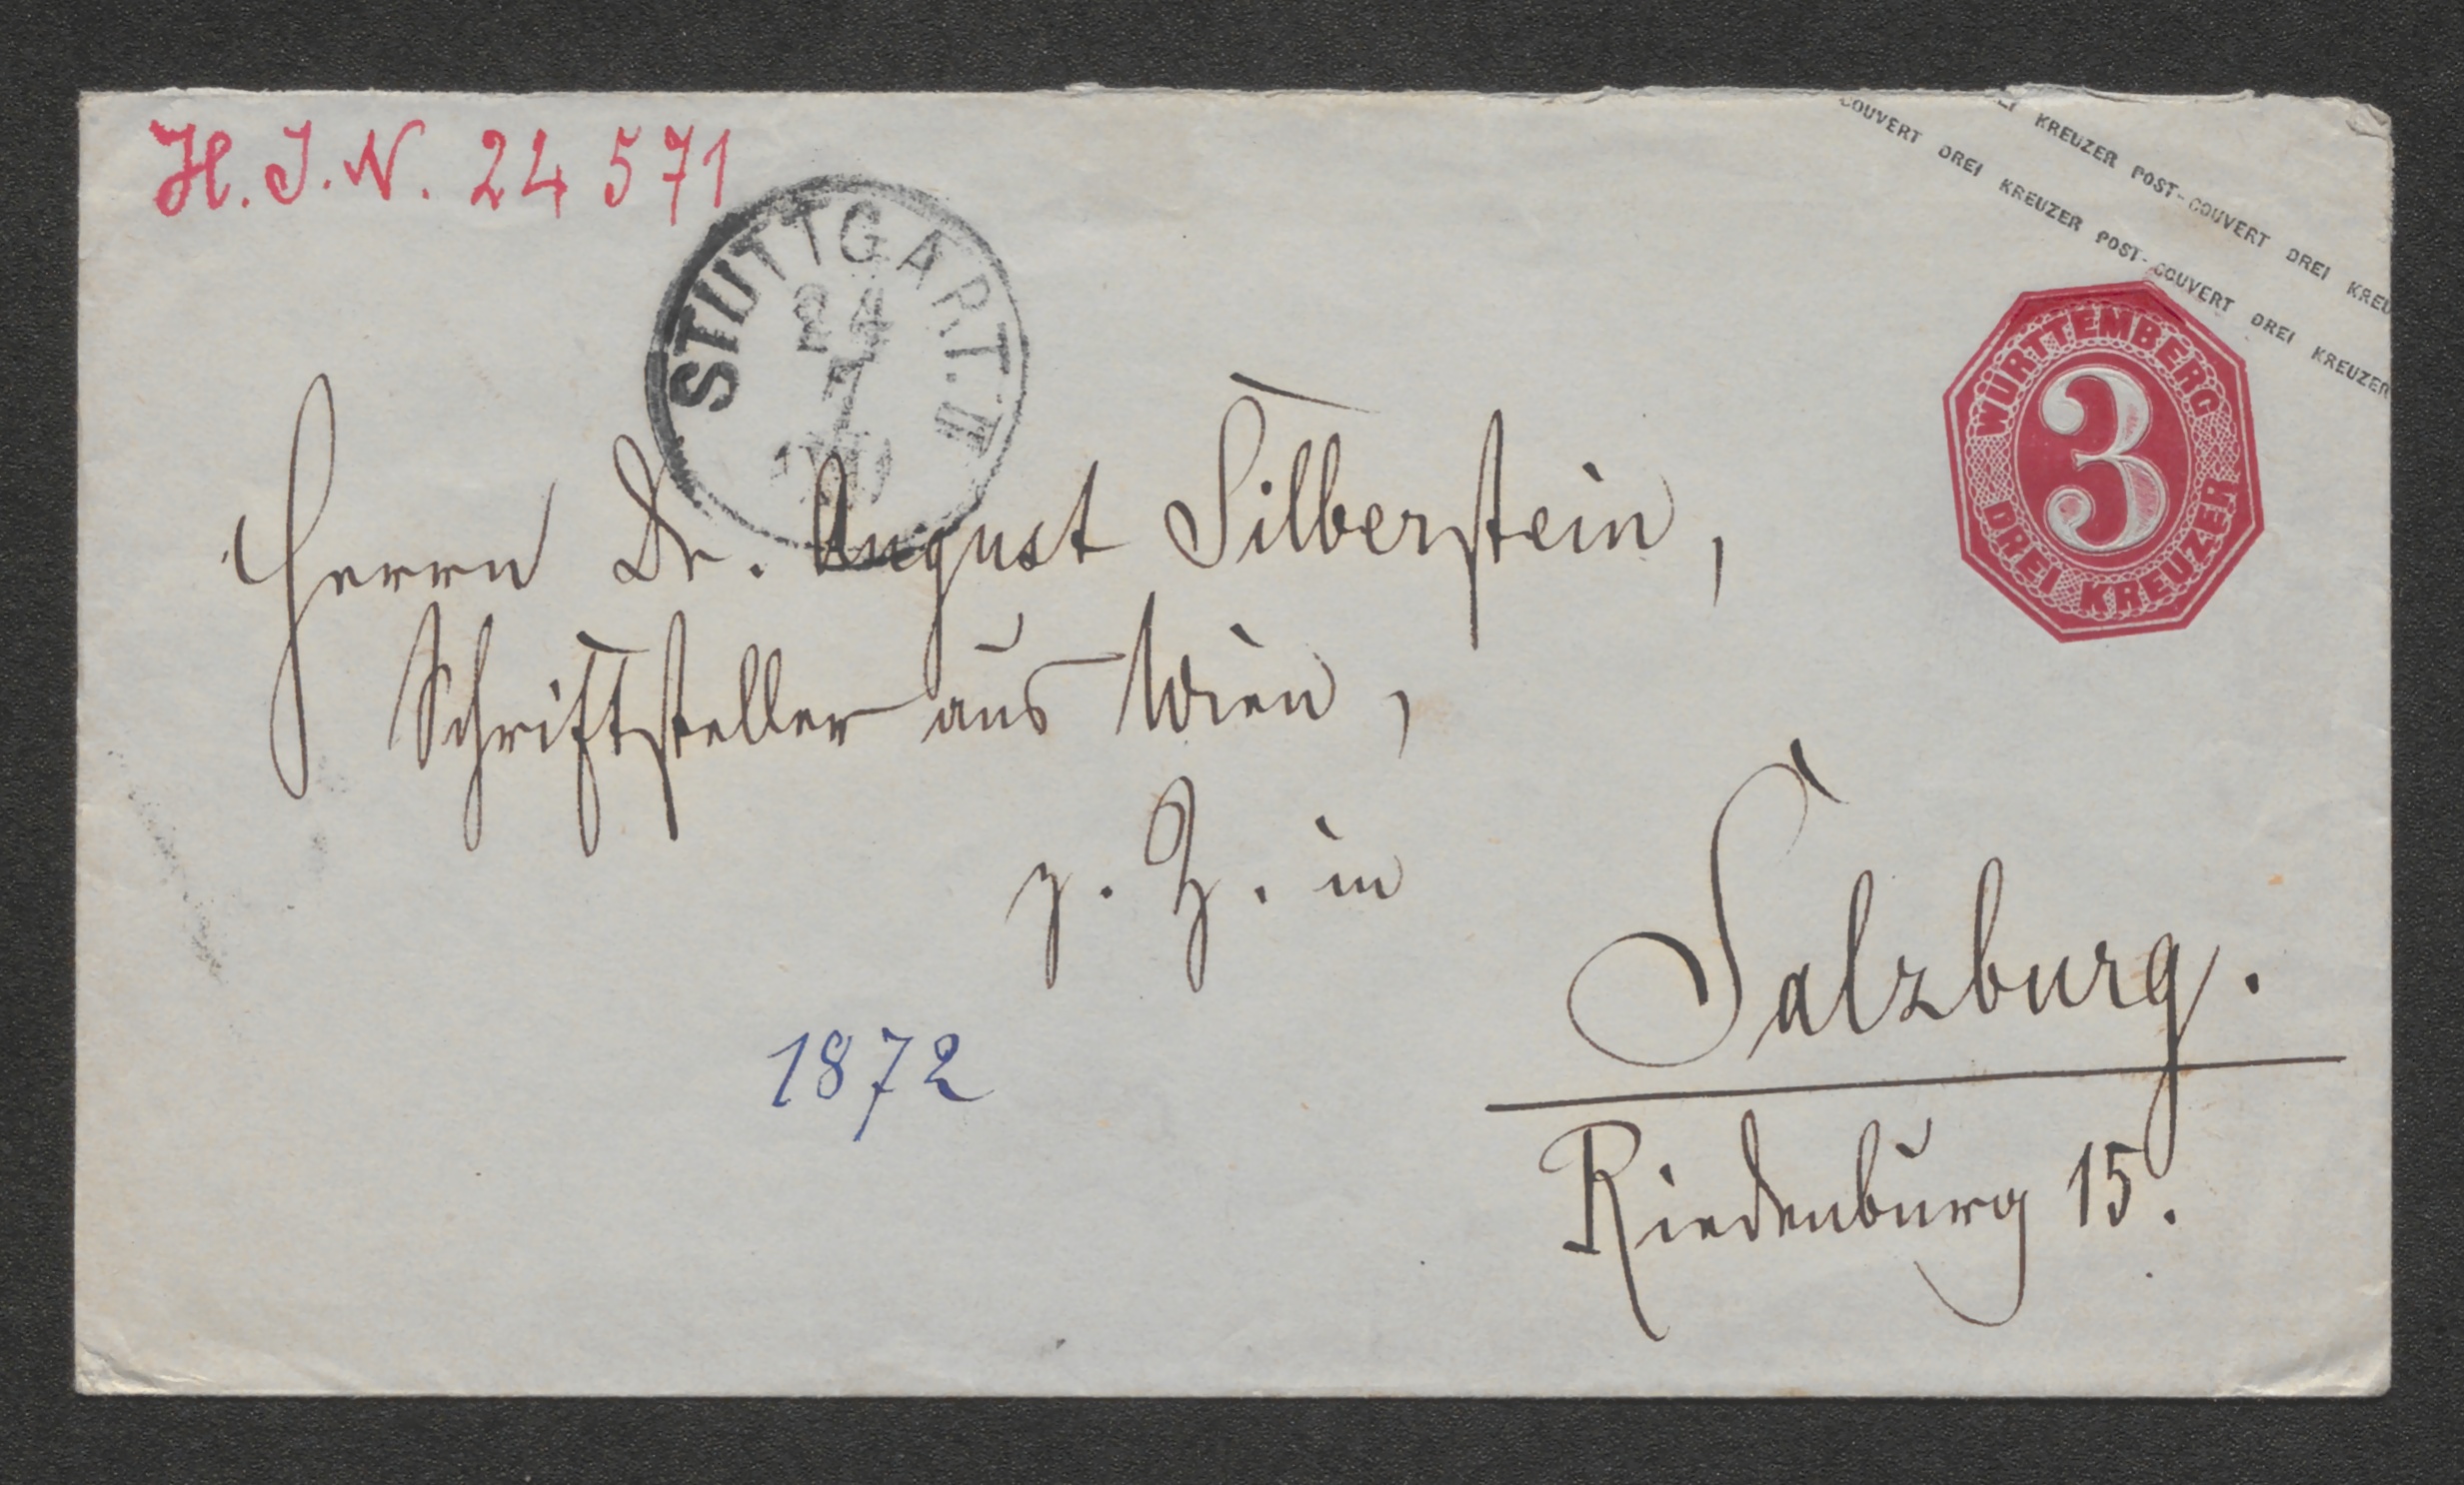 H. J. N. 24 571
KREUZER POST-COUVERT DREI KREU
COUVERT DREI KREUZER POST-COUVERT DREI KREUZER
STUTTGART. II
24
7
WÜRTTEMBERG
3
DREI KREUZER
Herrn Dr. August Silberstein,
Schriftsteller aus Wien,
z. Z. in
Salzburg.
Riedenburg 15.
1872